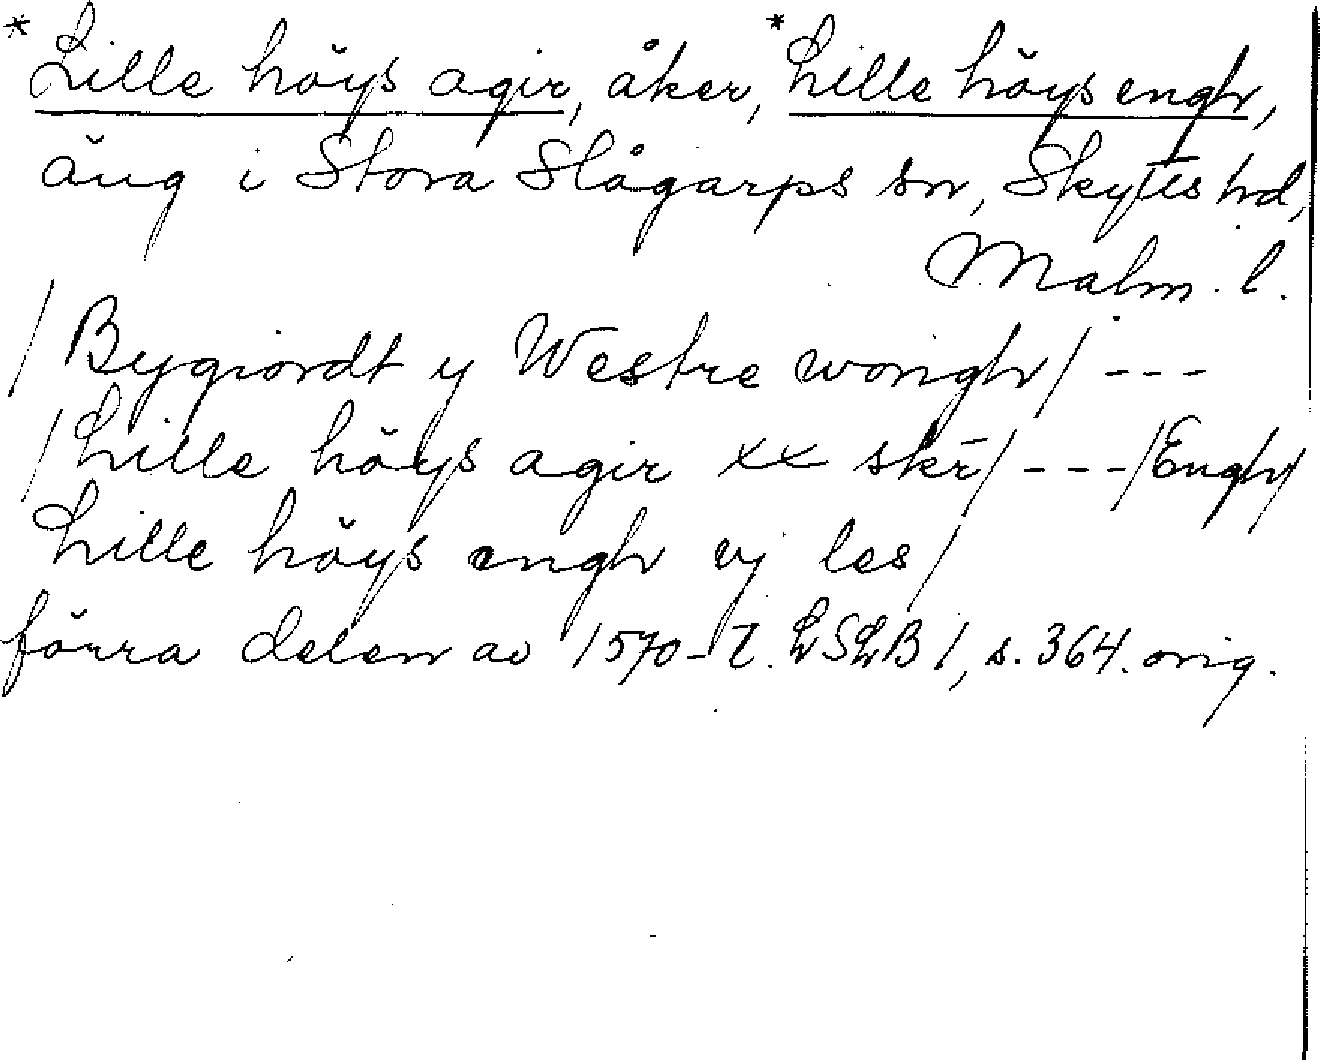 *Lille höys agir, åker, *Lille höys engh,
äng i Stora Slågarps sn, Skytts hd,
Malm. l.
/Bygiordt y Westre wongh/ ---
/Lille höys agir xx skr̄/ ---/Engh/
Lille höys engh vj les/
förra delen av 1570-t. LSLB 1, s. 364. orig.